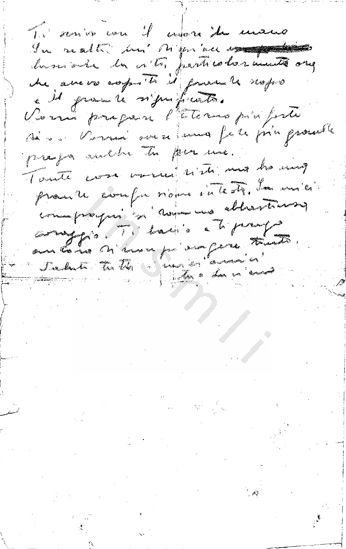 Ti scrivo con il cuore in mano
In realtà mi dispiace
lasciare la vita, particolarmente ora
che avevo capito il grande scopo
e il grande significato.
Vorrei pregare l'Eterno più forte
Vorrei avere una fede più grande
prega anche tu per me.
Tante cose vorrei dirti, ma ho una
grande confusione in testa. I miei
compagni si fanno abbastanza
coraggio. Ti bacio e ti prego
ancora di non piangere tanto.
Saluti tutti miei amici
tuo Luciano
insmli